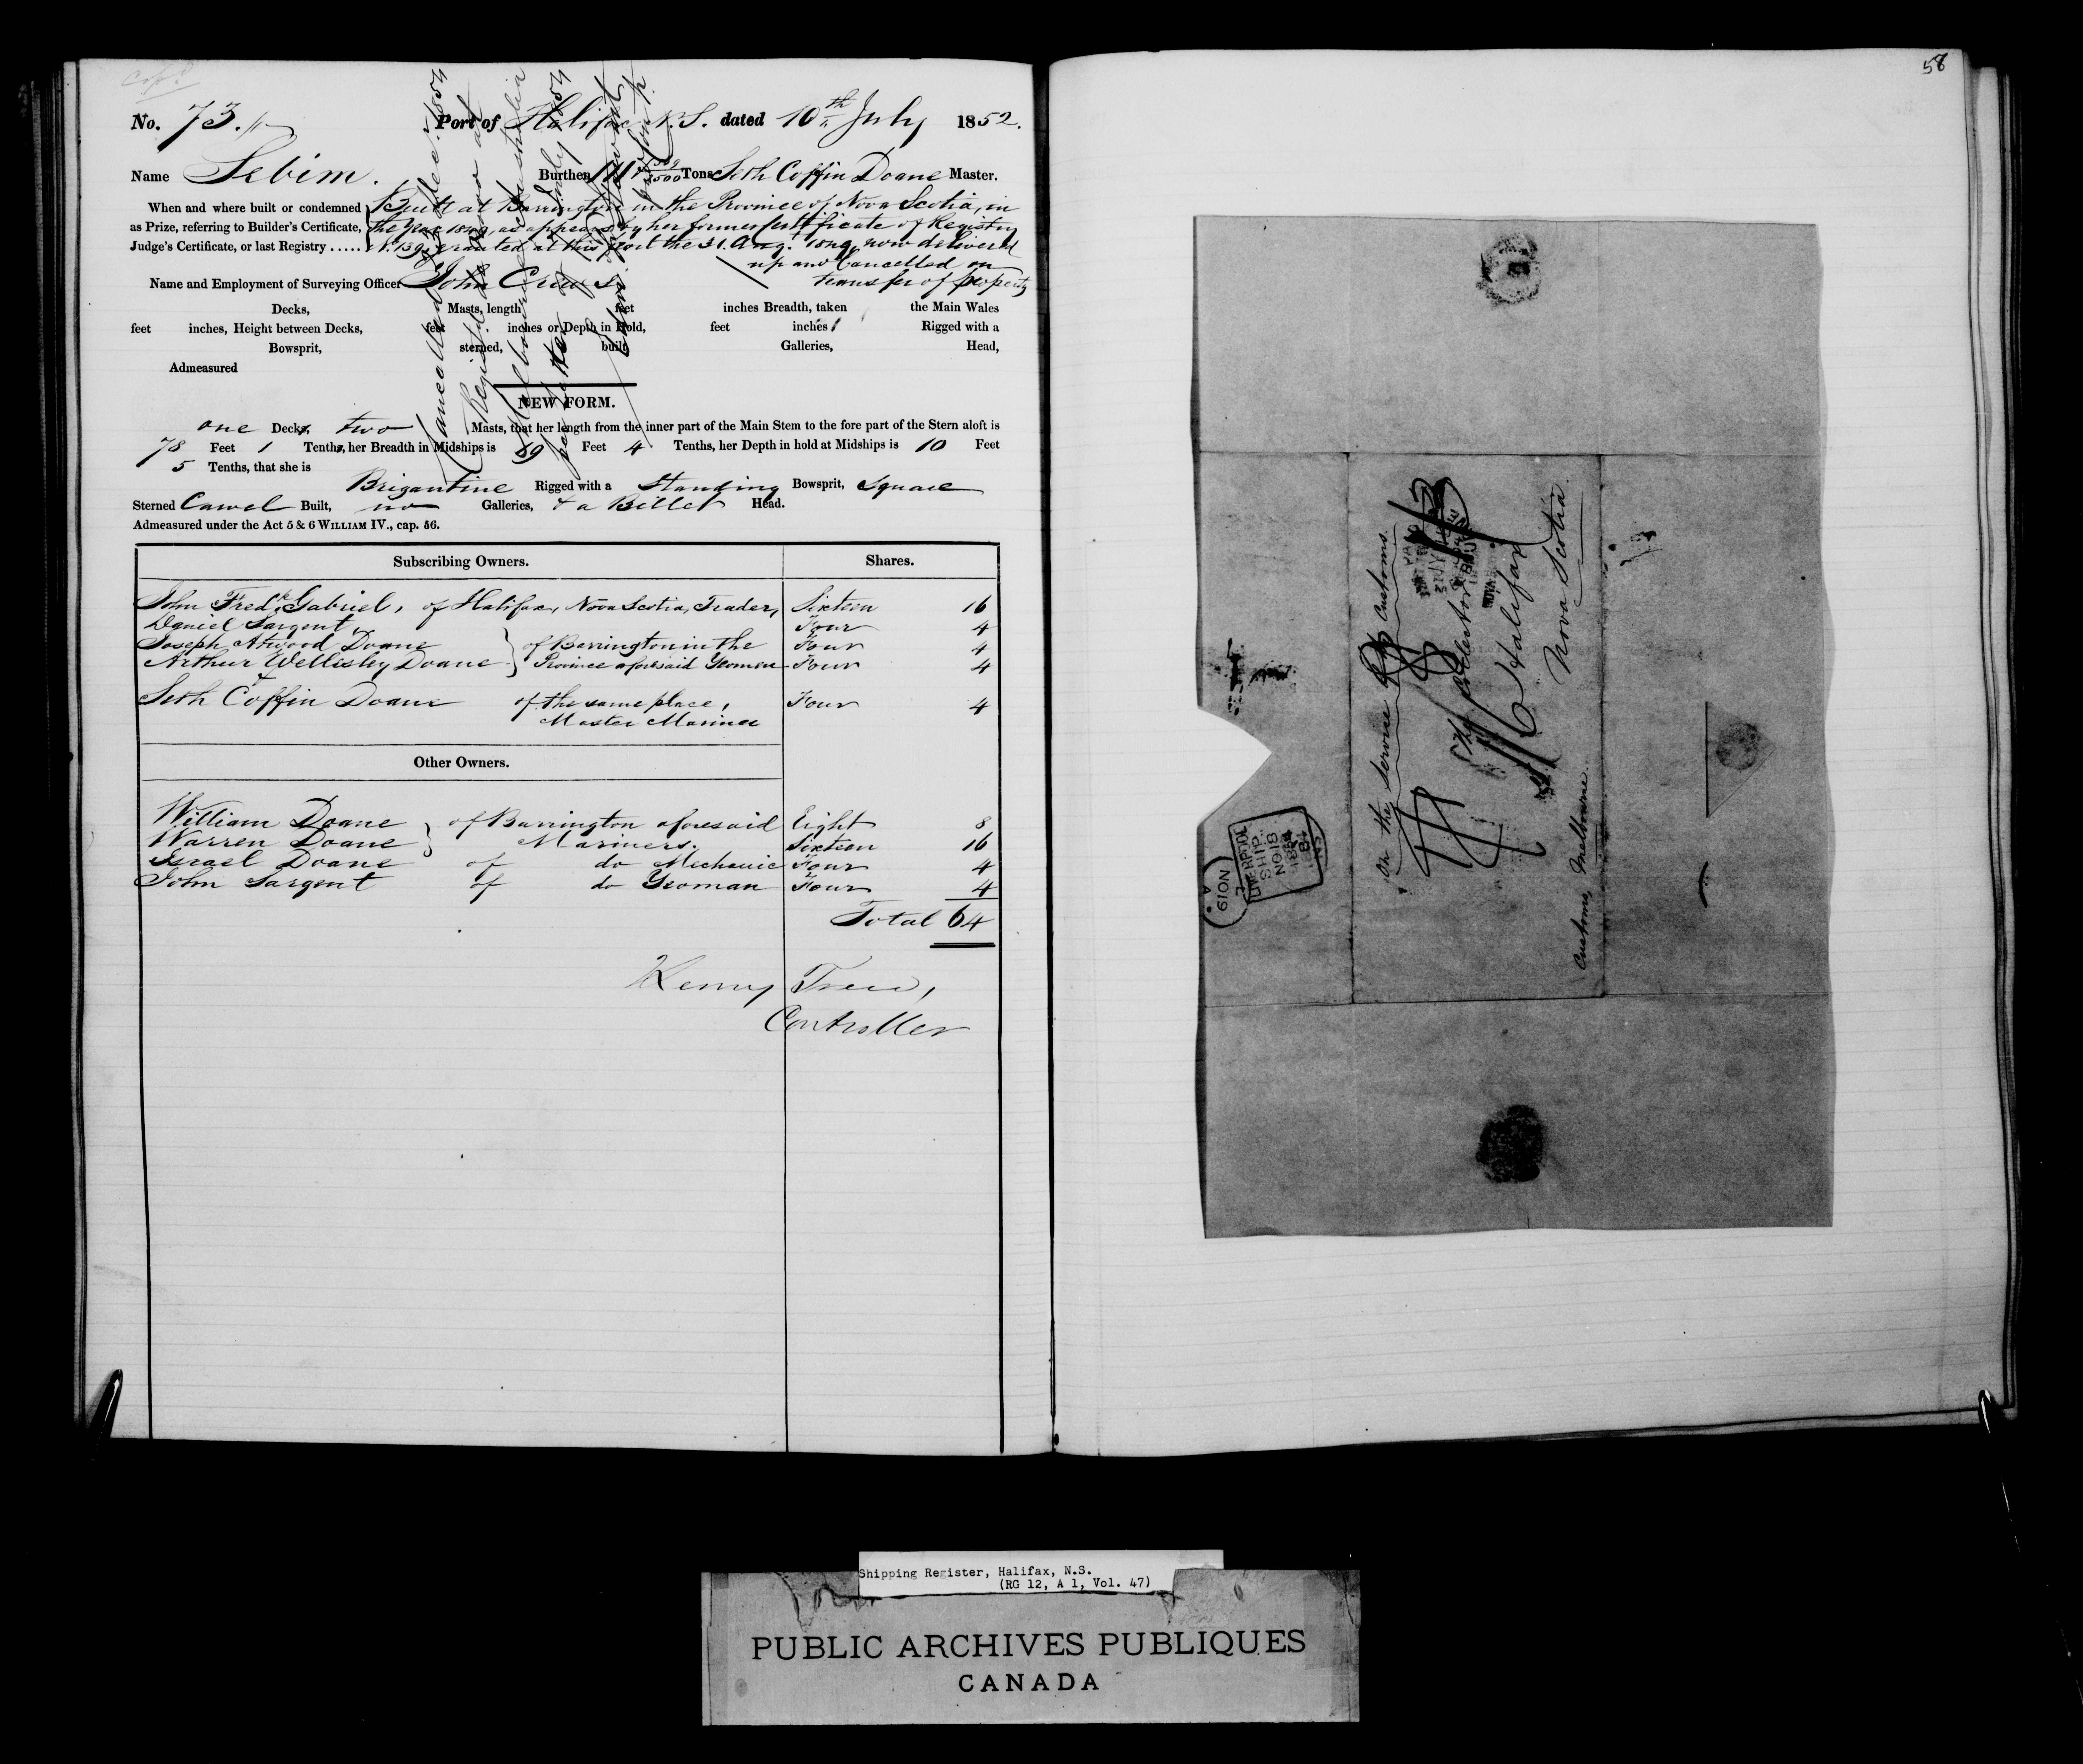 No. 73. Port of Halifax N.S. dated 10th July 1852.
Name Sebim. Burthen 111 Tons Seth Coffin Doane Master.
When and where built or condemned
as Prize, referring to Builder's Certificate,
Judge's Certificate, or last Registry .....
Built at Barrington in the Province of Nova Scotia, in
the Year 1849, as appears by her former Certificate of Registry
No. 139, granted at this port the 31. Augt. 1849, now delivered
up and Cancelled on
transfer of property
Name and Employment of Surveying Officer John Crews
Decks, Masts, length feet inches Breadth, taken the Main Wales
feet inches, Height between Decks, feet inches or Depth in Hold, feet inches Rigged with a
Bowsprit, sterned, built Galleries, Head,
Admeasured
Cancelled
Registered
Melbourne Australia
NEW FORM.
one Decks, two Masts, that her length from the inner part of the Main Stem to the fore part of the Stern aloft is
78 Feet 1 Tenths, her Breadth in Midships is 19 Feet 4 Tenths, her Depth in hold at Midships is 10 Feet
5 Tenths, that she is
Brigantine Rigged with a Standing Bowsprit, Square
Sterned Carvel Built, no Galleries, & a Billet Head.
Admeasured under the Act 5 & 6 WILLIAM IV., cap. 56.
Subscribing Owners. Shares.
John Fredk. Gabriel, of Halifax, Nova Scotia, Trader, Sixteen 16
Daniel Sargent, Four 4
Joseph Atwood Doane of Barrington in the Four 4
Arthur Wellisley Doane Province aforesaid Yeomen Four 4
&
Seth Coffin Doane of the same place, Four 4
Master Mariner
Other Owners.
William Doane of Barrington aforesaid Eight 8
Warren Doane Mariners. Sixteen 16
Israel Doane of do Mechanic Four 4
John Sargent of do Yeoman Four 4
Total 64
Controller
58
On the Service of Customs.
The Collector
Halifax
Nova Scotia.
Customs, Melbourne.
LIVERPOOL
SHIP
NO 18
1854
6 NO 19
A
Shipping Register, Halifax, N.S.
(RG 12, A 1, Vol. 47)
PUBLIC ARCHIVES PUBLIQUES
CANADA